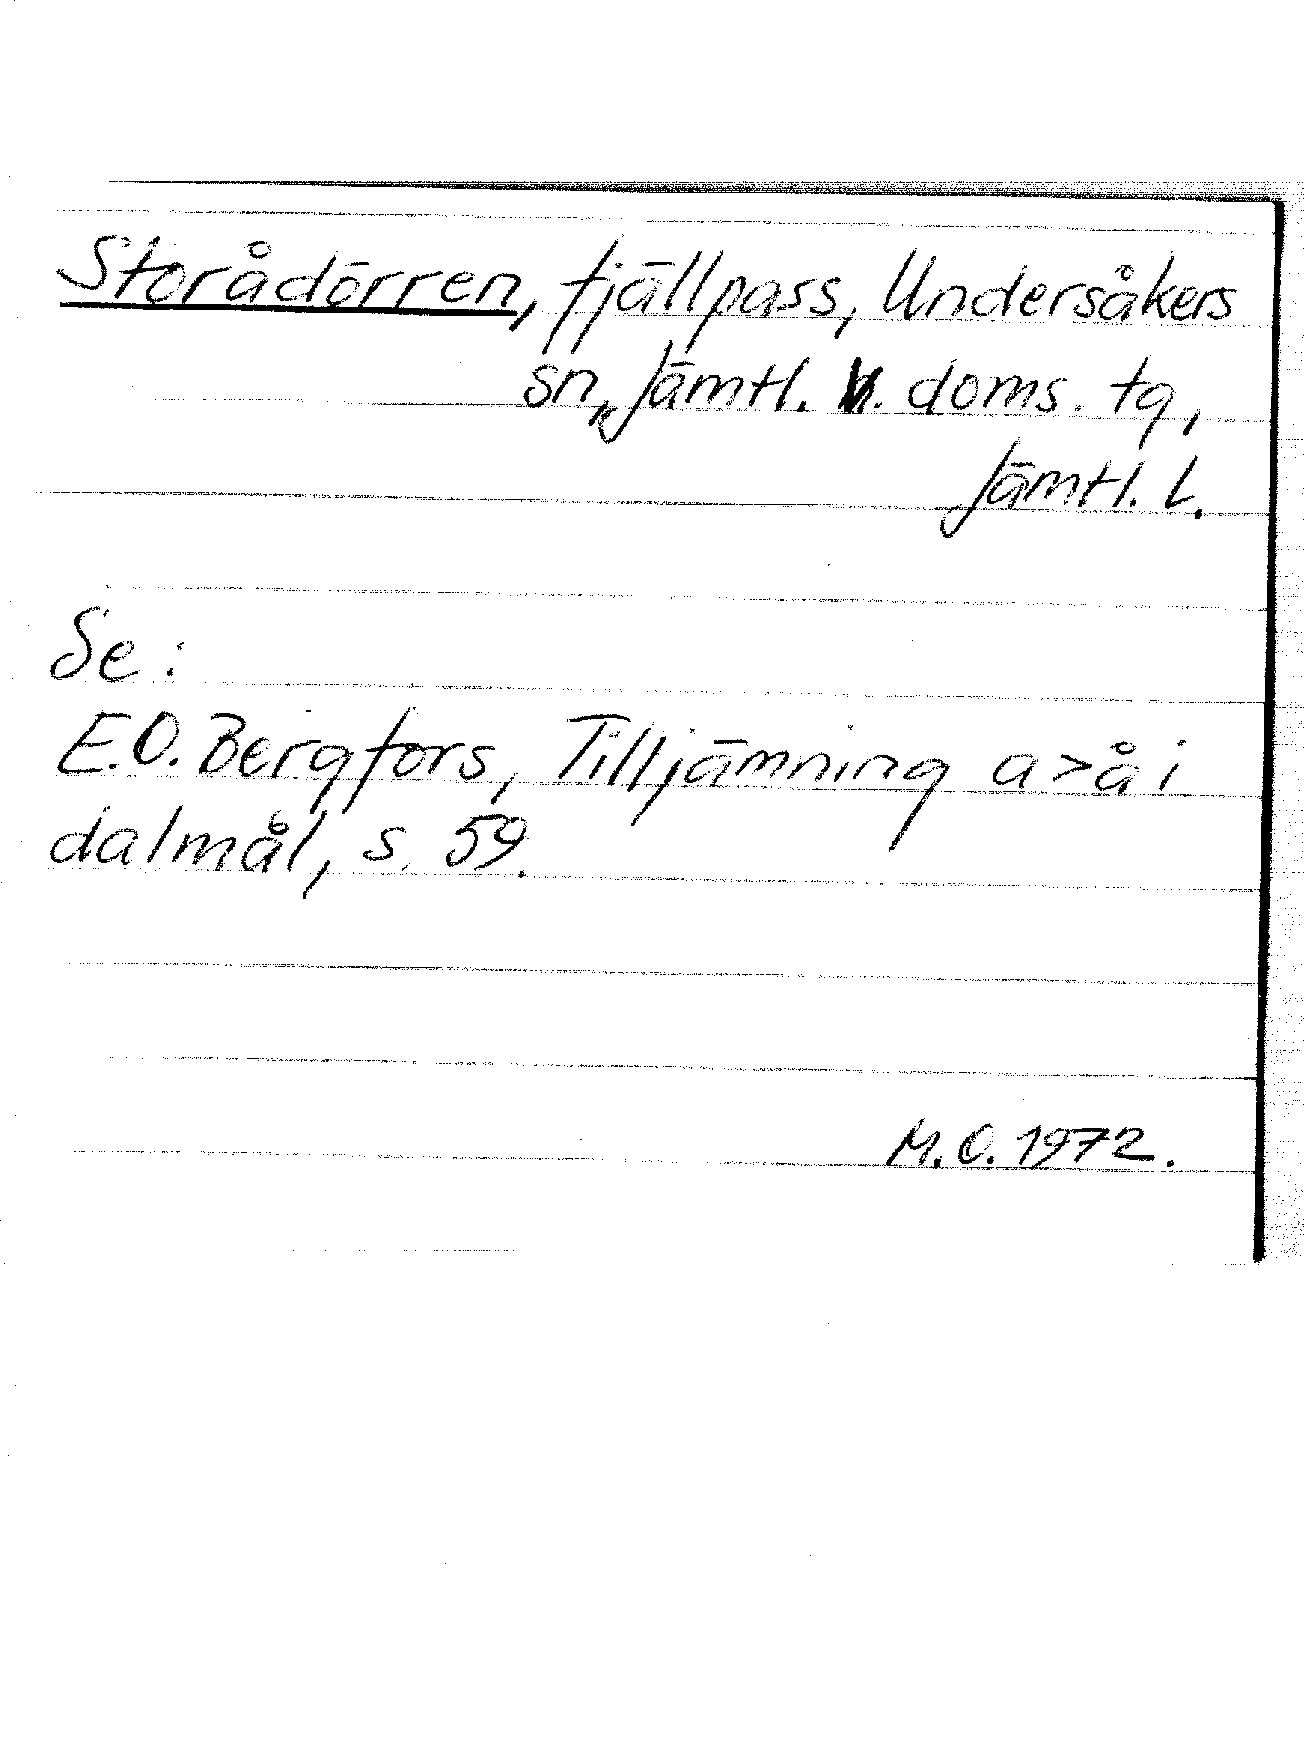 Storådörren, fjällpass, Undersåkers
sn, Jämtl. V. doms. tg,
Jämtl. L.
Se:
E.O. Bergfors, Tilljämning a>å i
dalmål, s. 59.
M.O. 1972.